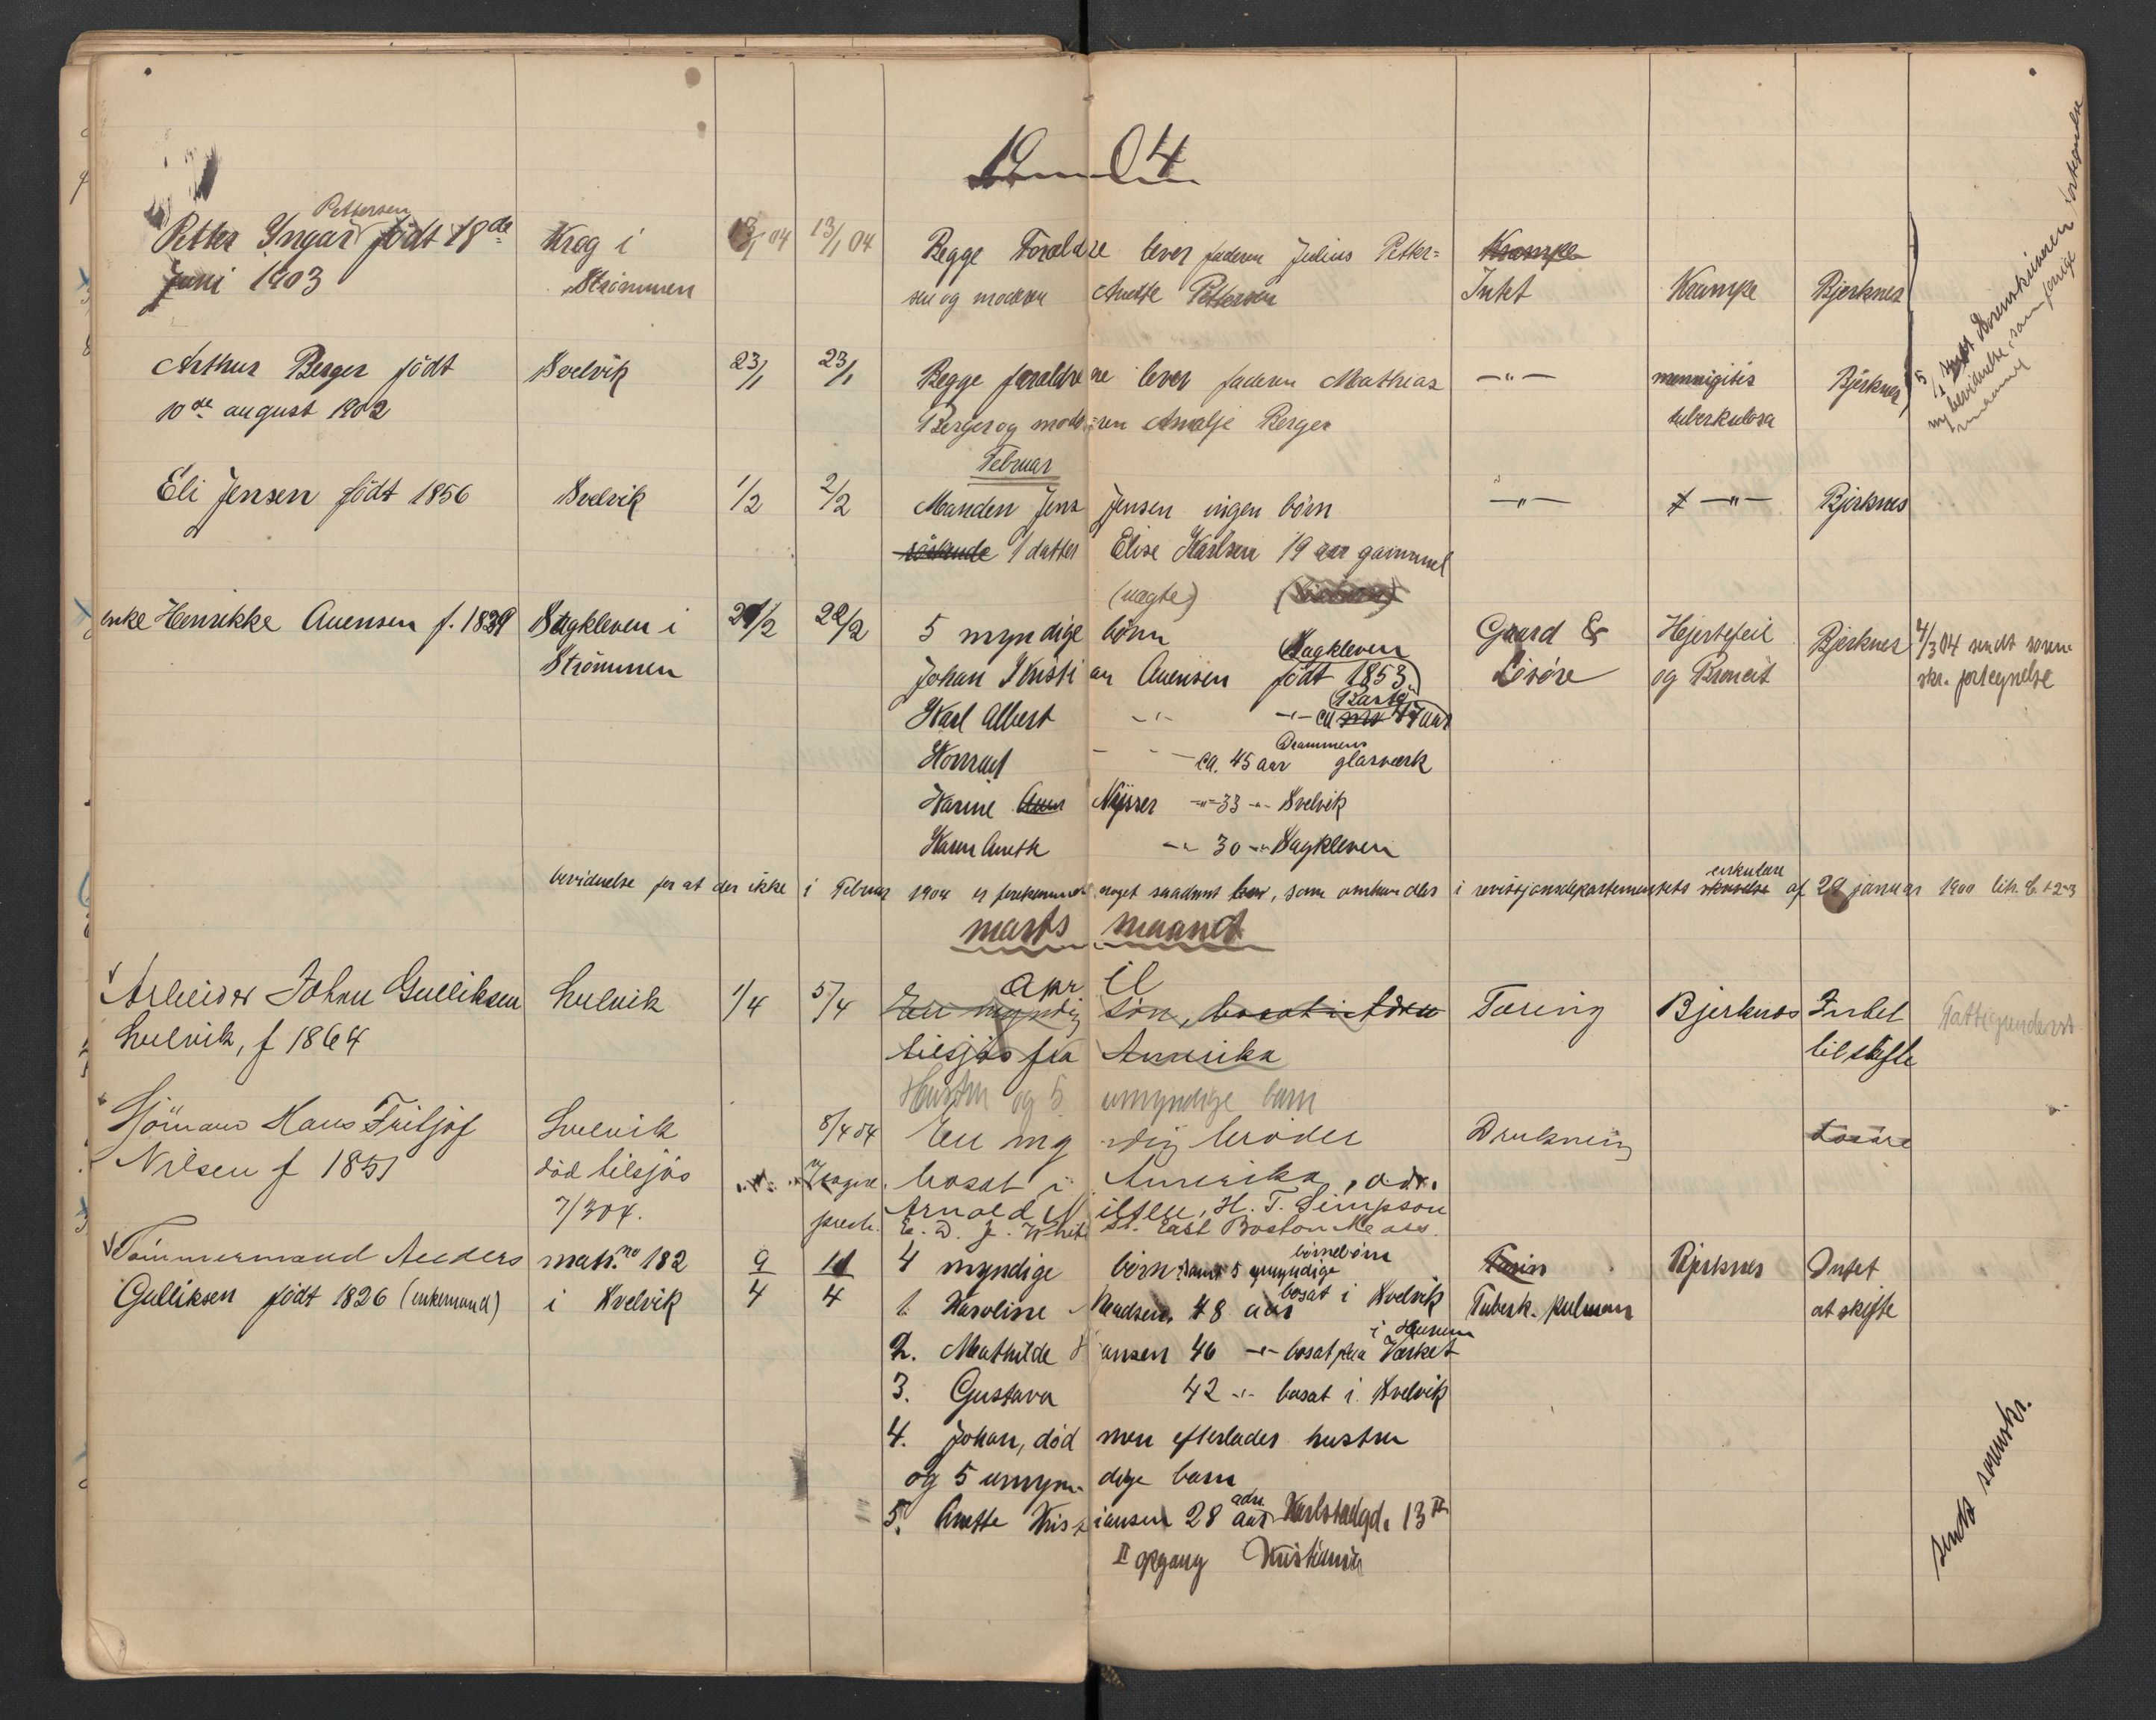 1904
Pettersen
Petter Yngar født 18de Krog i 13/1 04 13/1 04 Begge Foreldre lever faderen Julius Petter= Krampe
Juni 1903 Strømmen sen og moderen Anette Pettersen Intet Krampe Bjerknes
5/2 sendt Sorenskriveren dødsfortegnelse
ny bevidnelse, som forrige
maaned
Arthur Berger født Svelvik 23/1 23/1 Begge foreldrene lever faderen Mathias —"— mennigitis Bjerknes
10de august 1902 Berger og mode=ren Amalje Berger tuberkulosa
Februar
Eli Jensen født 1856 Svelvik 1/2 2/2 Manden Jens Jensen ingen børn —"— —"— Bjerknes
søskende 1 datter Elise Karlsen 19 aar gammel
(uægte)
enke Henrikke Auensen f. 1839 Sagkleven i 21/2 22/2 5 myndige børn Gaard & Hjertefeil Bjerknes 4/3 04 sendt soren
Strømmen Sagkleven Løsøre og Bronkit skr. fortegnelse
Johan Kristian Auensen født 1853
Karl Albert —"— —"— ca 47 aar
Drammens
Konrad — " — ca. 45 aar glasværk
Karine Auen Nysser —"— 33 —"— Svelvik
Karen Anette —"— 30 —"— Sagkleven
bevidnelse for at der ikke i Februar 1904 er forekommet noget saadant, som omhandles i revisjonsdepartementets cirkulære af 29 januar 1900 litr. b. 1-2-3
marts maaned
April
Arbeider Johan Gulliksen Svelvik 1/4 5/4 En myndig søn, bosat i Tæring Bjerknes Intet Fattigunderst.
Svelvik, f 1864 tilsjøs fra Amerika til skifte
Hustru og 5 umyndige barn
Sjömand Hans Fritjof Svelvik 8/4 04 En myndig broder Drukning Løsøre
Nilsen f 1851 død tilsjøs bosat i Amerika, adr.
7/3 04. Arnold Nilsen, H. T. Simpson
E. D. J. White St. East Boston Mass.
Tømmermand Anders matr. no 182 9/4 11/4 4 myndige børn samt 5 umyndige børnebørn Tærin Bjerknes Intet
Gulliksen født 1826 (enkemand) i Svelvik 1. Karoline Madsen 48 aar bosat i Svelvik Tuberk. pulmon at skifte
2. Mathilde Hansen 46 —"— bosat paa Værket
3. Gustava 42 —"— bosat i Svelvik
4. Johan, død men efterlader hustru
og 5 umyndige barn
5. Anette Kristiansen 28 aar adr. Karlstadgd. 13 II
II opgang Kristiania
sendt sorenskr.